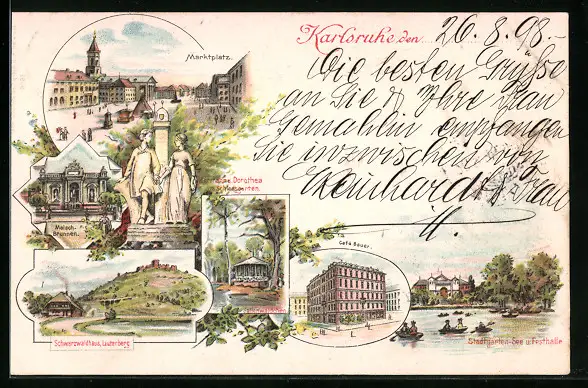 Karlsruhe, den 26.8.98.
Marktplatz.
Die besten Grüße
an Sie & Ihre Frau
Gemahlin empfangen
Sie inzwischen von
& Frau
Dorothea
garten.
Malsch-
Brunnen.
Café Bauer.
Schwarzwaldhaus, Lauterberg.
Stadtgarten-See u. Festhalle